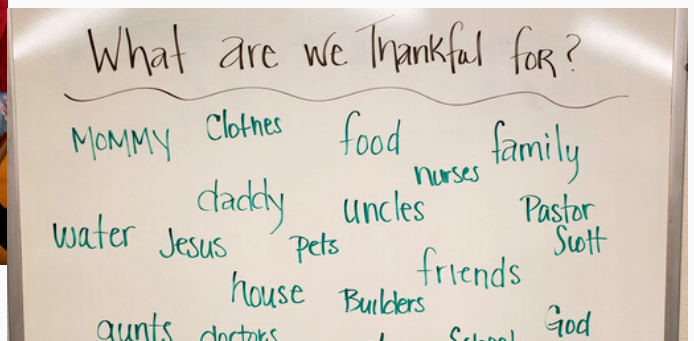 What are we Thankful for?
MOMMY Clothes food family
nurses
daddy uncles Pastor
water Jesus pets Scott
friends
house Builders
aunts doctors School God